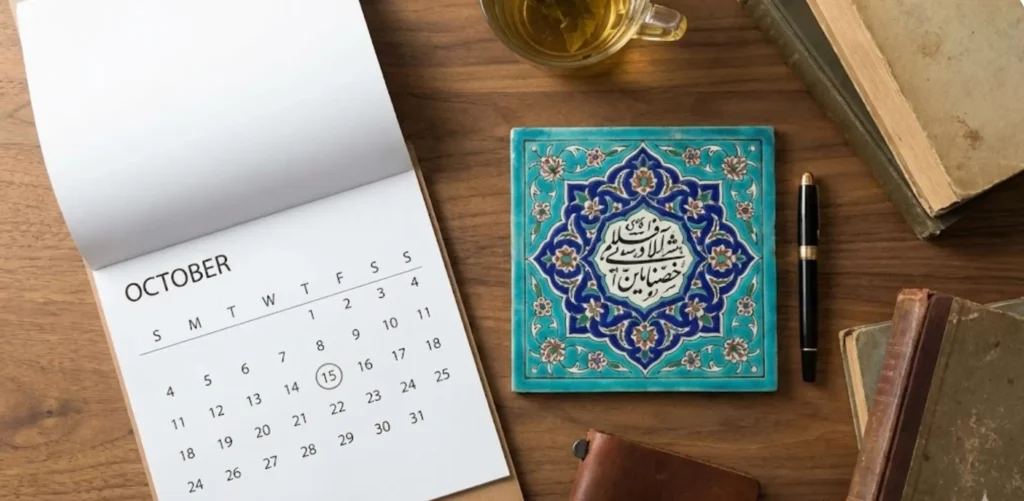 OCTOBER
S M T W T F S S
1 2 3 4
4 5 6 7 8 9 10 11
11 12 13 14 15 16 17 18
18 19 20 21 22 23 24 25
24 26 27 28 29 30 31